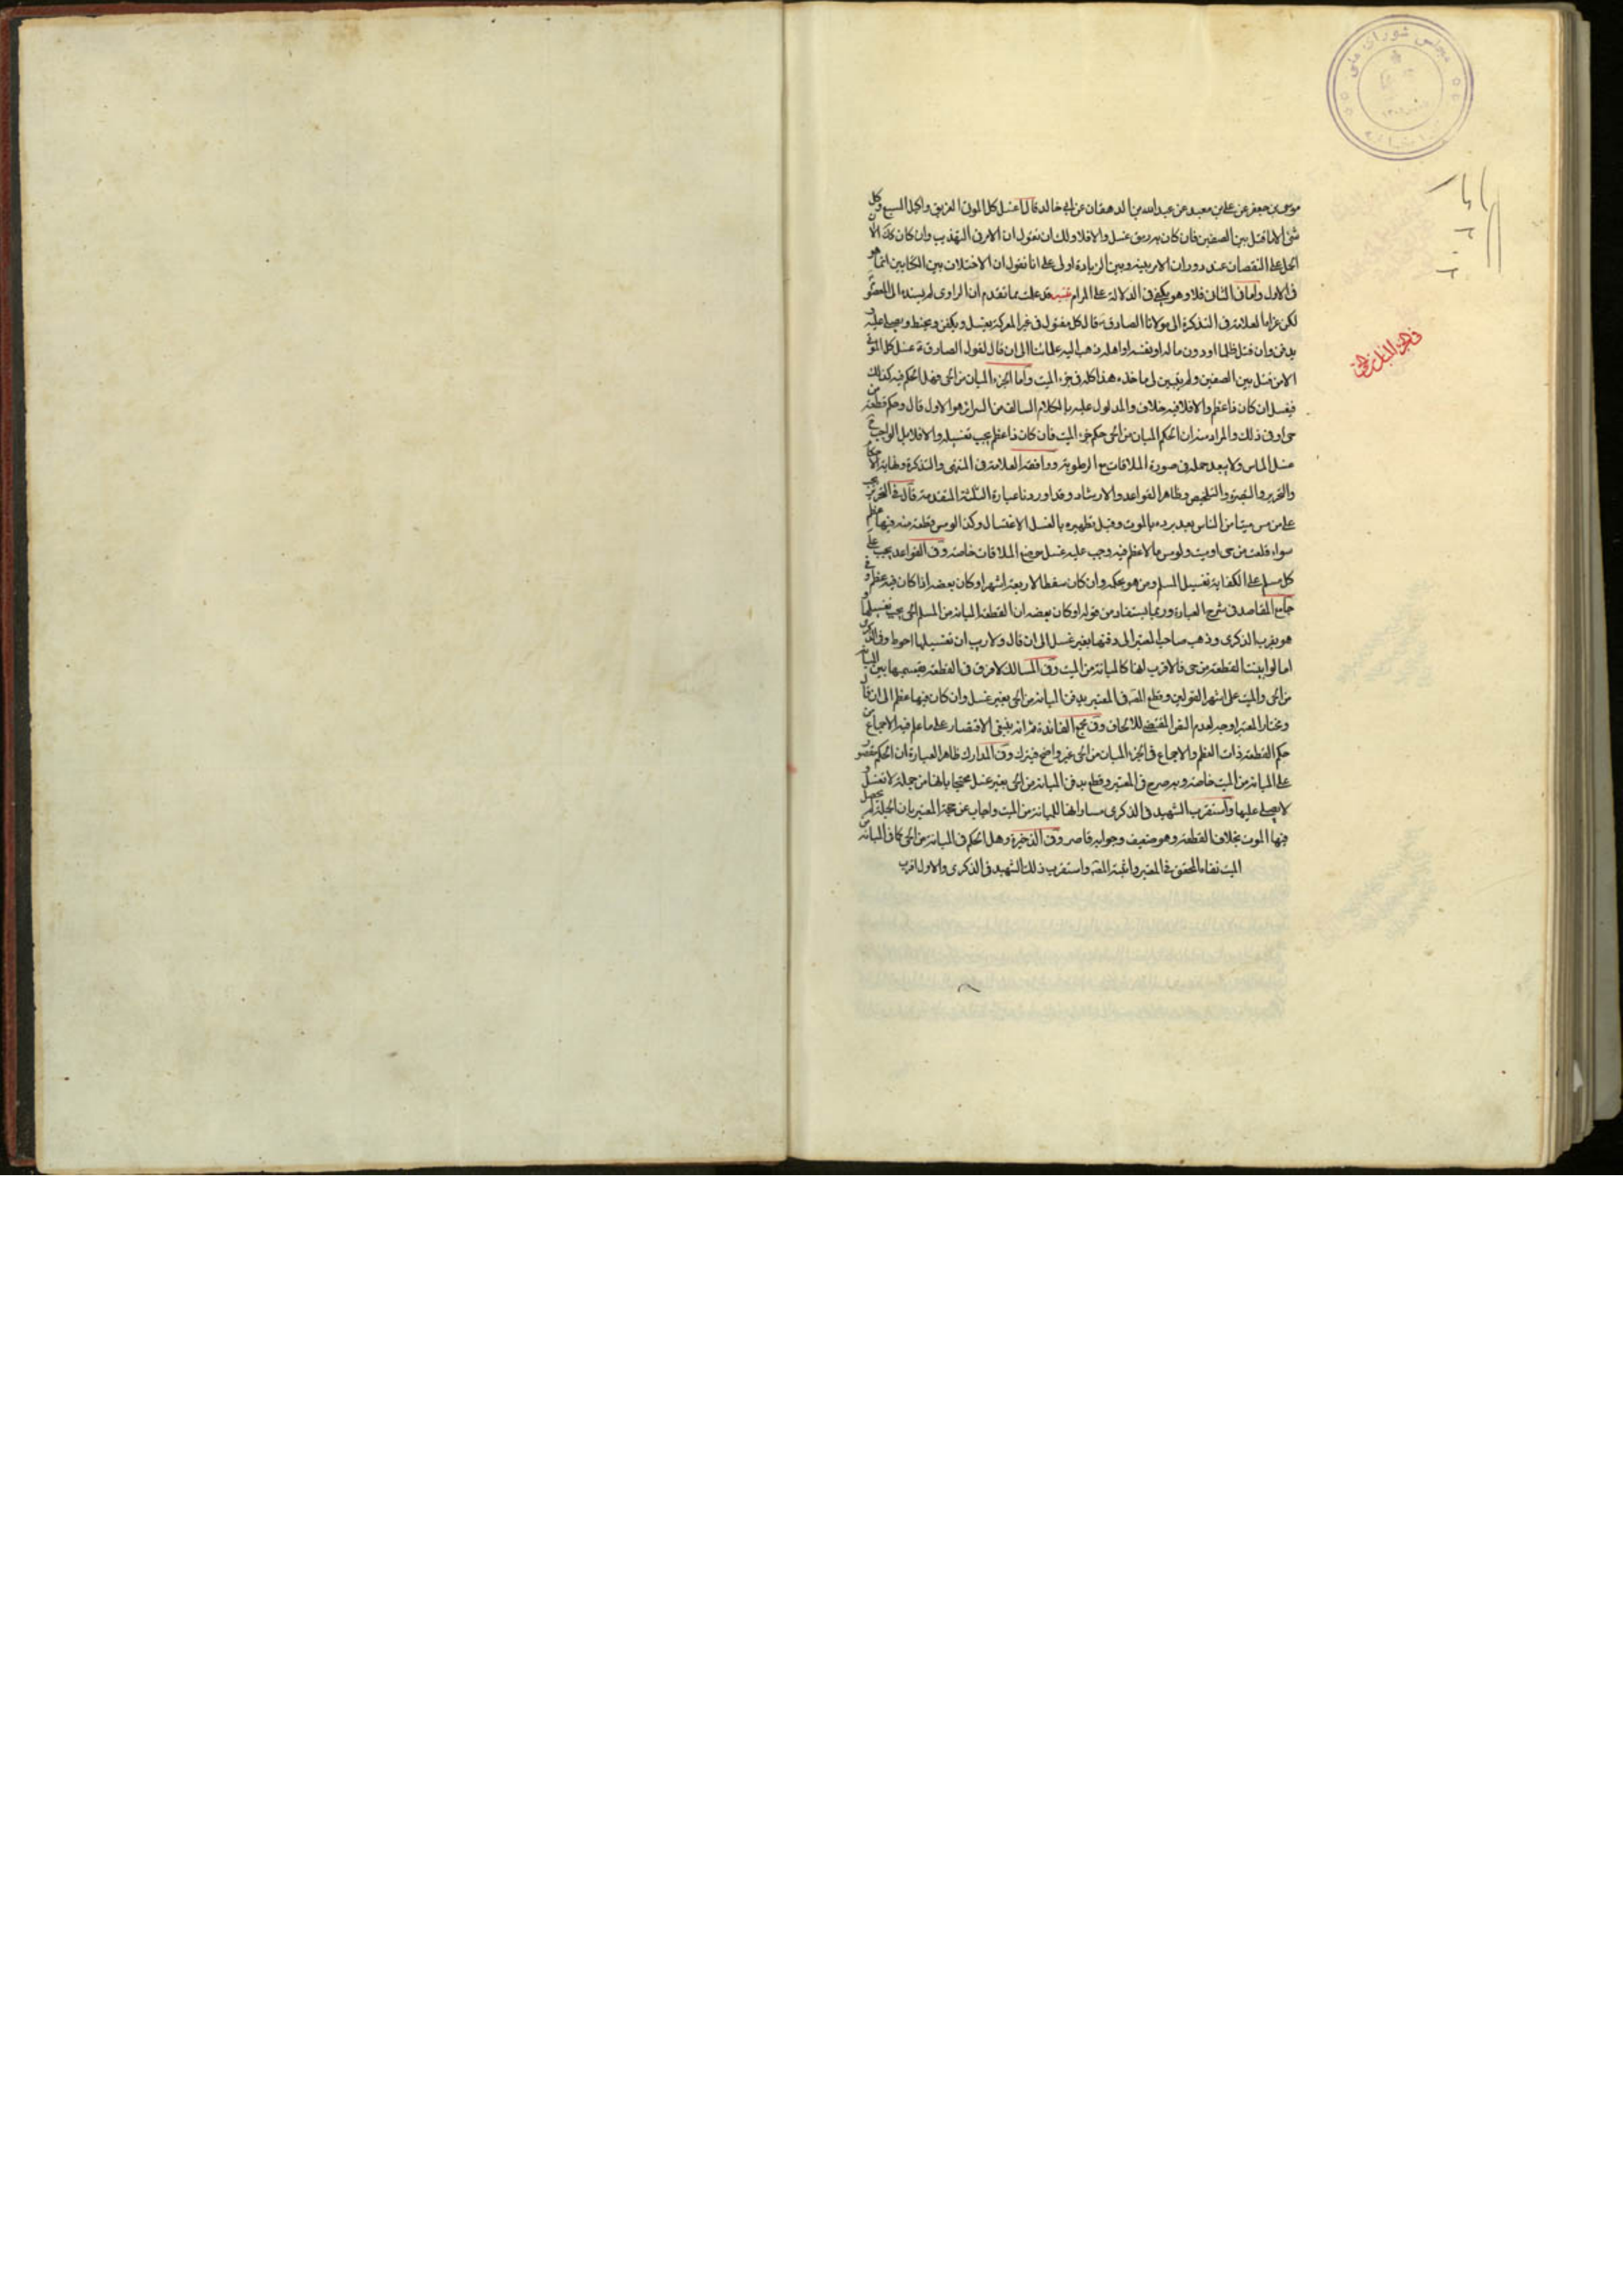 مجلس شورای ملی
موسى بن جعفر عن علي بن معبد عن عبدالله بن الدهقان عن ابي خالد قال اغسل كل الموتى الغريق واكيل السبع وكل
شئ الا ما قتل بين الصفين فان كان به رمق غسل والا فلا ولك ان تقول ان الامر في التهذيب وان كان كك الا ان
الحمل على النقصان عند دوران الامر بينه وبين الزيادة اولى على انا نقول ان الاختلاف بين الكتابين انما هو
في الاول واما في الثاني فلا وهو يكفي في الدلالة على المرام تنبيه قد علمت مما تقدم ان الراوي لم يسنده الى المعصوم
لكن عزاه العلامة في التذكرة الى مولانا الصادق قال كل مقتول في غير المعركة يغسل ويكفن ويحنط ويصلى عليه و
يدفن وان قتل ظلما او دون ماله او نفسه او اهله ذهب اليه علمائنا الى ان قال لقول الصادق ع غسل كل الموتى
الا من قتل بين الصفين ولم يتبين لي ماخذه هذا كله في جزء الميت واما الجزء المبان من الحي فهل الحكم فيه كذلك
فيغسل ان كان ذا عظم والا فلا فيه خلاف والمدلول عليه بالكلام السالف من السرائر هو الاول قال وحكم قطعة من
حي او في ذلك والمراد منه ان الحكم المبان من الحي حكم جزء الميت فان كان ذا عظم يجب تغسيله والا فلا بل الواجب ح
غسل الماس ولا يبعد حمله في صورة الملاقات مع الرطوبة ووافقه العلامة في المنتهى والتذكرة ونهاية الاحكام
والتحرير والتبصرة والتلخيص وظاهر القواعد والارشاد وقد اوردنا عبارة الثلثة المتقدمة قال في التحرير يجب
على من مس ميتا من الناس بعد برده بالموت وقبل تطهيره بالغسل الاغتسال وكذا لو مس قطعة منه فيها عظم
سواء قطعت من حي او ميت ولو مس ما لا عظم فيه وجب عليه غسل موضع الملاقات خاصة وفي القواعد يجب على
كل مسلم على الكفاية تغسيل المسلم ومن هو بحكمه وان كان سقطا لاربعة اشهر او كان بعضه اذا كان فيه عظم و في
جامع المقاصد في شرح العبارة وربما يستفاد من قوله او كان بعضه ان القطعة المبانة من المسلم الحي يجب تغسيلها و
هو يقرب الذكرى وذهب صاحب المعتبر الى دفنها بغير غسل الى ان قال ولا ريب ان تغسيلها احوط وفي الذكرى
اما لو ابينت القطعة من حي فالاقرب انها كالمبانة من الميت وفي المسالك لا فرق في القطعة بقسميها بين المبانة
من الحي والميت على اشهر القولين وقطع المصـ في المعتبر بدفن المبانة من الحي بغير غسل وان كان فيها عظم الى ان قال
ومختار المعتبر اوجه لعدم النص المقتضي للالحاق وفي مجمع الفائدة ثم انه ينبغي الاقتصار على ما علم فيه الاجماع من
حكم القطعة ذات العظم والاجماع في الجزء المبان من الحي غير واضح فيترك وفي المدارك ظاهر العبارة ان الحكم مقصور
على المبانة من الميت خاصة وبه صرح في المعتبر وقطع بدفن المبانة من الحي بغير غسل محتجا بانها من جملة لا تغسل و
لا يصلى عليها واستقرب الشهيد في الذكرى مساواتها للمبانة من الميت واجاب عن حجة المعتبر بان الجملة لم يحصل
فيها الموت بخلاف القطعة وهو ضعيف وجوابه قاصر وفي الذخيرة وهل الحكم في المبانة من الحي كما في المبانة من
الميت نفاه المحقق في المعتبر واثبته المصـ واستقرب ذلك الشهيد في الذكرى والاول اقرب
في الجزء المبان من الحي